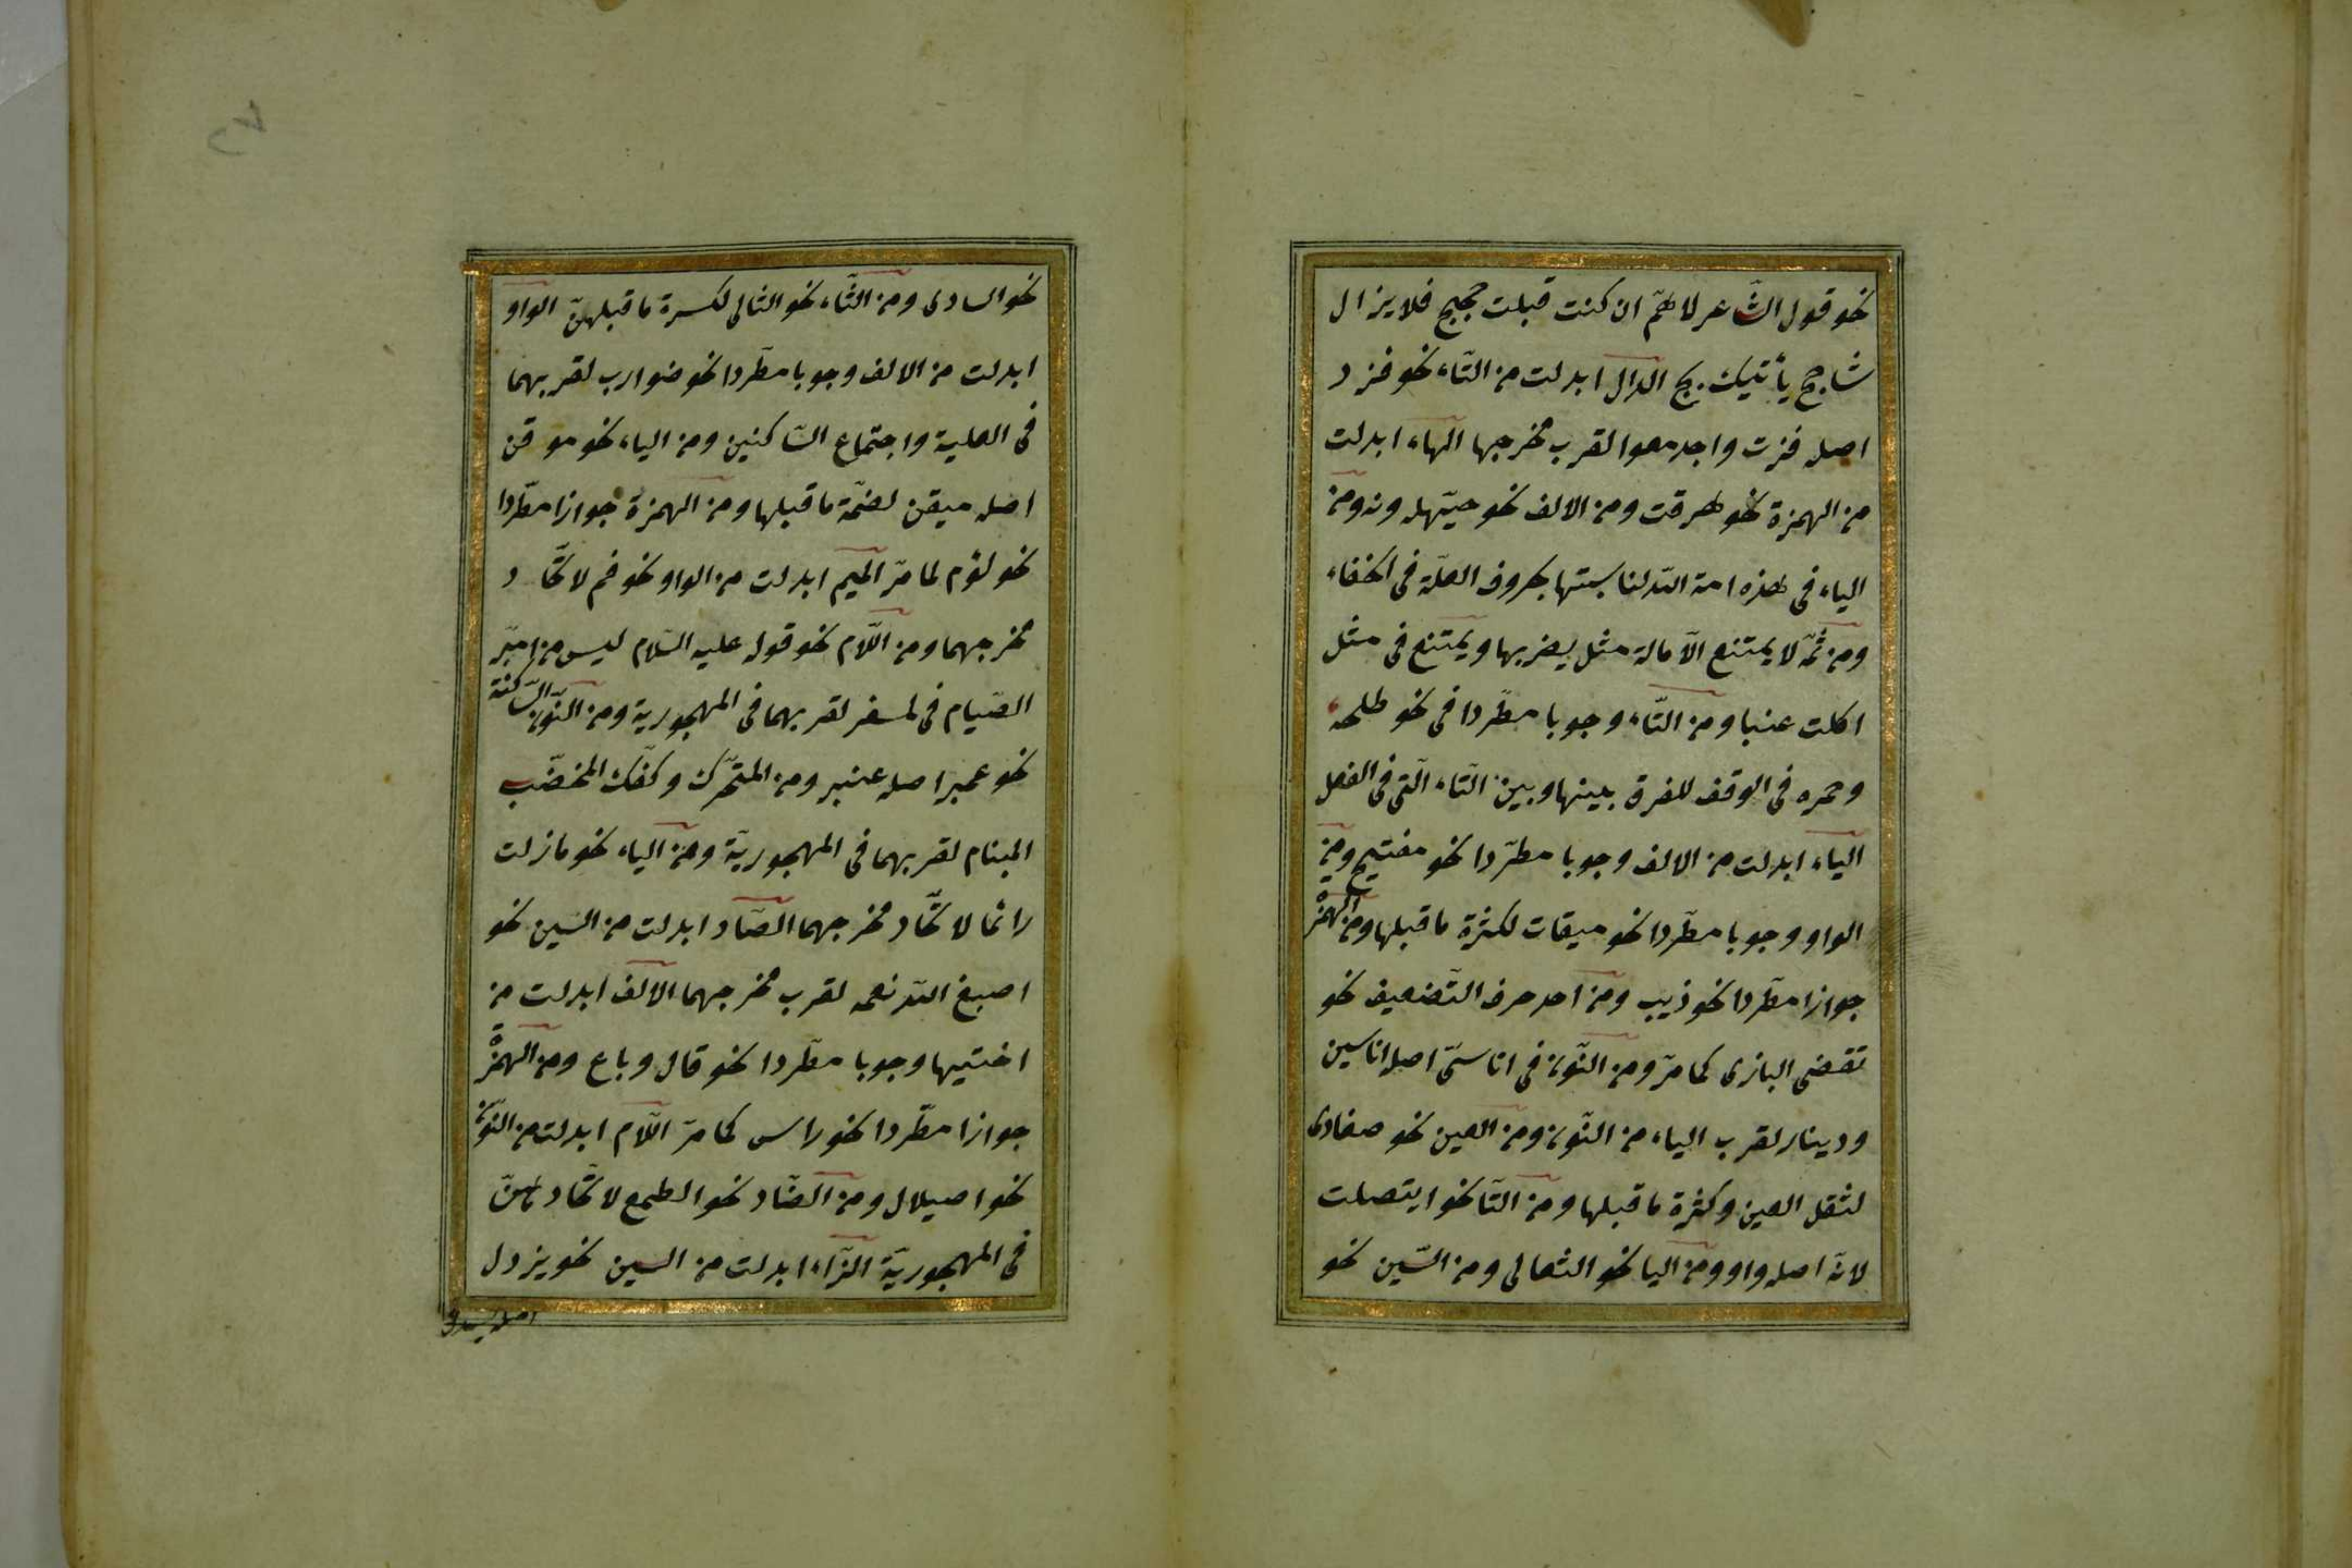 نحو قول الشّاعر لاهمّ ان كنت قبلت حجتج فلا يزال
شاحج يأتيك بج الدال ابدلت من التّاء نحو فزد
اصله فزت واجدمعوا لقرب مخرجها الهاء ابدلت
من الهمزة نحو هرقت ومن الالف نحو حيّهله ونه ومن
الياء فى هذه امة اللّه لمناسبتها بحروف العلّة فى الخفاء
ومن ثمّه لا يمتنع الامالة مثل يضربها ويمتنع فى مثل
اكلت عنبا ومن التّاء وجوبا مطّردا فى نحو طلحه
وحمزه فى الوقف للفرق بينها وبين التّاء الّتى فى الفعل
الياء ابدلت من الالف وجوبا مطّردا نحو مفتيح ومن
الواو وجوبا مطّردا نحو ميقات لكثرة ما قبلها ومن الهمزة
جوازا مطّردا نحو ذيب ومن احد حرف التّضعيف نحو
تقضى البازى كما مرّ ومن النّون فى اناسىّ اصله اناسين
ودينار لقرب الياء من النّون ومن العين نحو ضفادى
لثقل العين وكثرة ما قبلها ومن التّا نحو ايتصلت
لانّ اصله واو ومن اليا نحو الثعالى ومن السّين نحو
نحو السادى ومن الثّاء نحو الثالى لكسرة ما قبلهنّ الواو
ابدلت من الالف وجوبا مطّردا نحو ضوارب لقربهما
فى العلية واجتماع السّاكنين ومن الياء نحو موقن
اصله ميقن لضمّة ما قبلها ومن الهمزة جوازا مطّردا
نحو لؤم لما مرّ الميم ابدلت من الواو نحو فم لاتّحاد
مخرجهما ومن اللّام نحو قوله عليه السّلام ليس من امبّر
الصّيام فى امسفر لقربهما فى المهجورية ومن النّون السّاكنة
نحو عمبر اصله عنبر ومن المتحّرك وكفّك المخضّب
البنام لقربهما فى المهجوريّة ومن الياء نحو مازلت
راتما لاتّحاد مخرجهما الصّاد ابدلت من السّين نحو
اصبغ اللّه نعمه لقرب مخرجهما الالف ابدلت من
اختيها وجوبا مطّردا نحو قال وباع ومن الهمزة
جوازا مطّردا نحو راس كما مرّ اللّام ابدلت من النّون
نحو اصيلال ومن الضّاد نحو الطجع لاتّحادهنّ
فى المهجوريّة الزّاء ابدلت من السين نحو يزدل
اصله يسدل